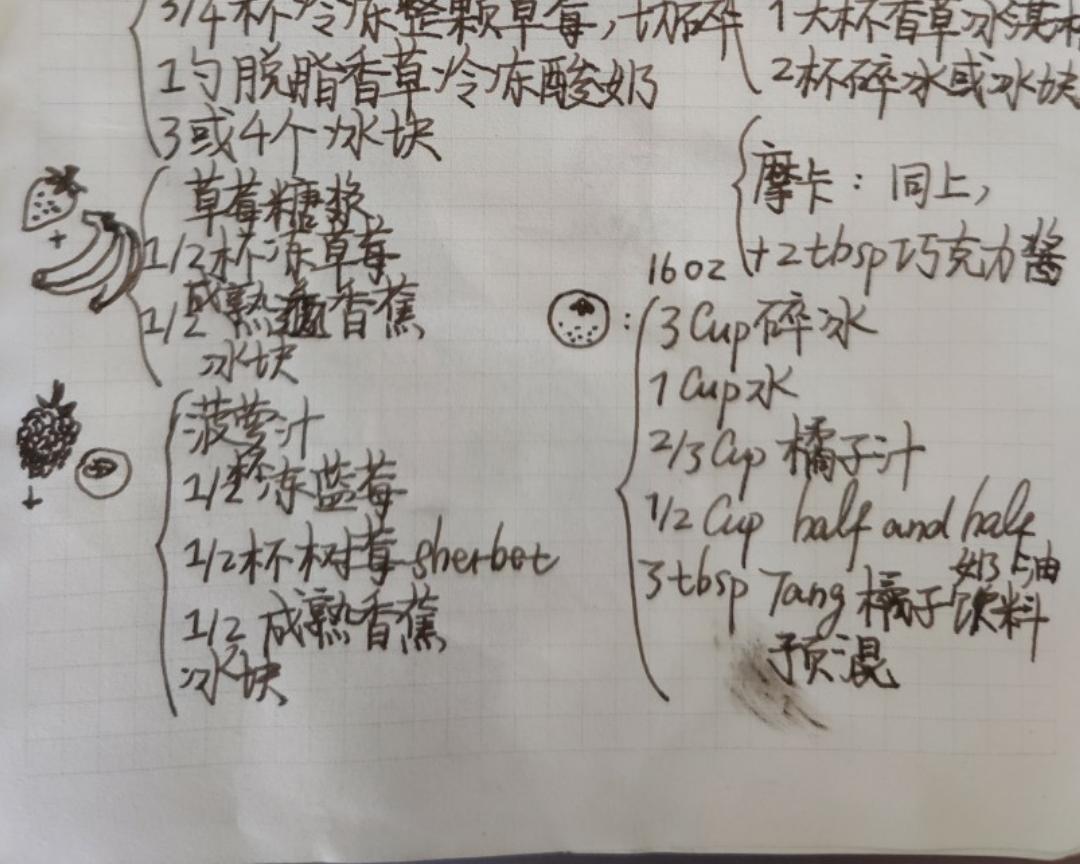 3/4杯冷冻整颗草莓,切碎
1勺脱脂香草冷冻酸奶
3或4个冰块
草莓糖浆,
1/2杯冻草莓
1/2成熟香蕉
冰块
菠萝汁
1/2杯冻蓝莓
1/2杯树莓sherbet
1/2成熟香蕉
冰块
1大杯香草冰淇淋
2杯碎冰或冰块
摩卡:同上,
+2tbsp巧克力酱
16oz
3 Cup碎冰
1 Cup水
2/3 Cup 橘子汁
1/2 Cup half and half
奶上油
3 tbsp Tang 橘子饮料
预混